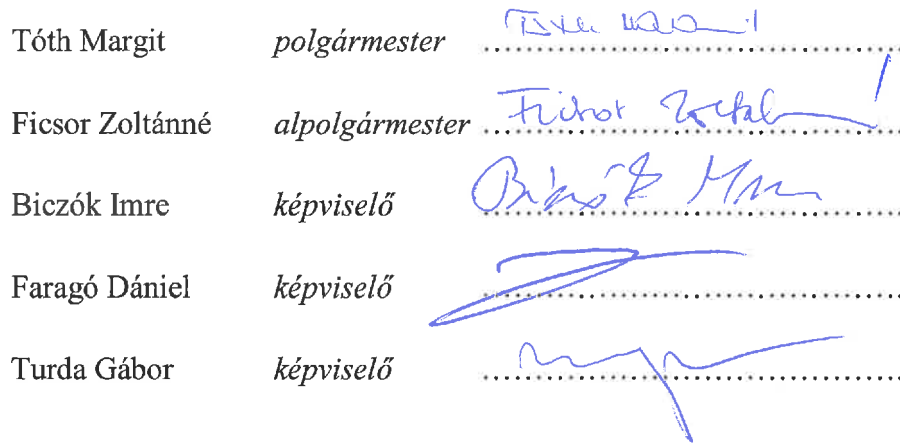 Tóth Margit polgármester
Ficsor Zoltánné alpolgármester
Biczók Imre képviselő
Faragó Dániel képviselő
Turda Gábor képviselő